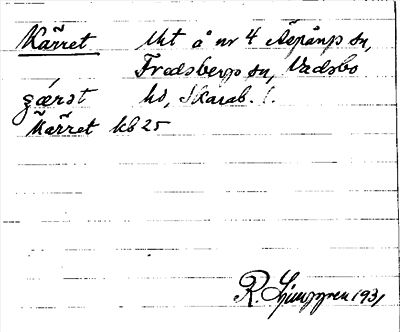 Kärret Utt å nr 4 Åspånp sn,
Fredsbergs sn, Vadsbo
hd, Skarab. l.
Kärret kb 25
R. Ljunggren 1931